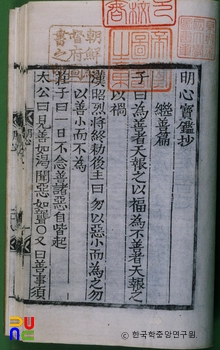 明心寶鑑抄
繼善篇
子曰爲善者天報之以福爲不善者天報之
以禍
漢昭烈將終勅後主曰勿以惡小而爲之勿
以善小而不爲
莊子曰一日不念善諸惡自皆起
太公曰見善如渴聞惡如聾○又曰善事須
ⓒ한국학중앙연구원